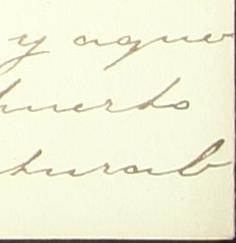 y aque
huerto
tural